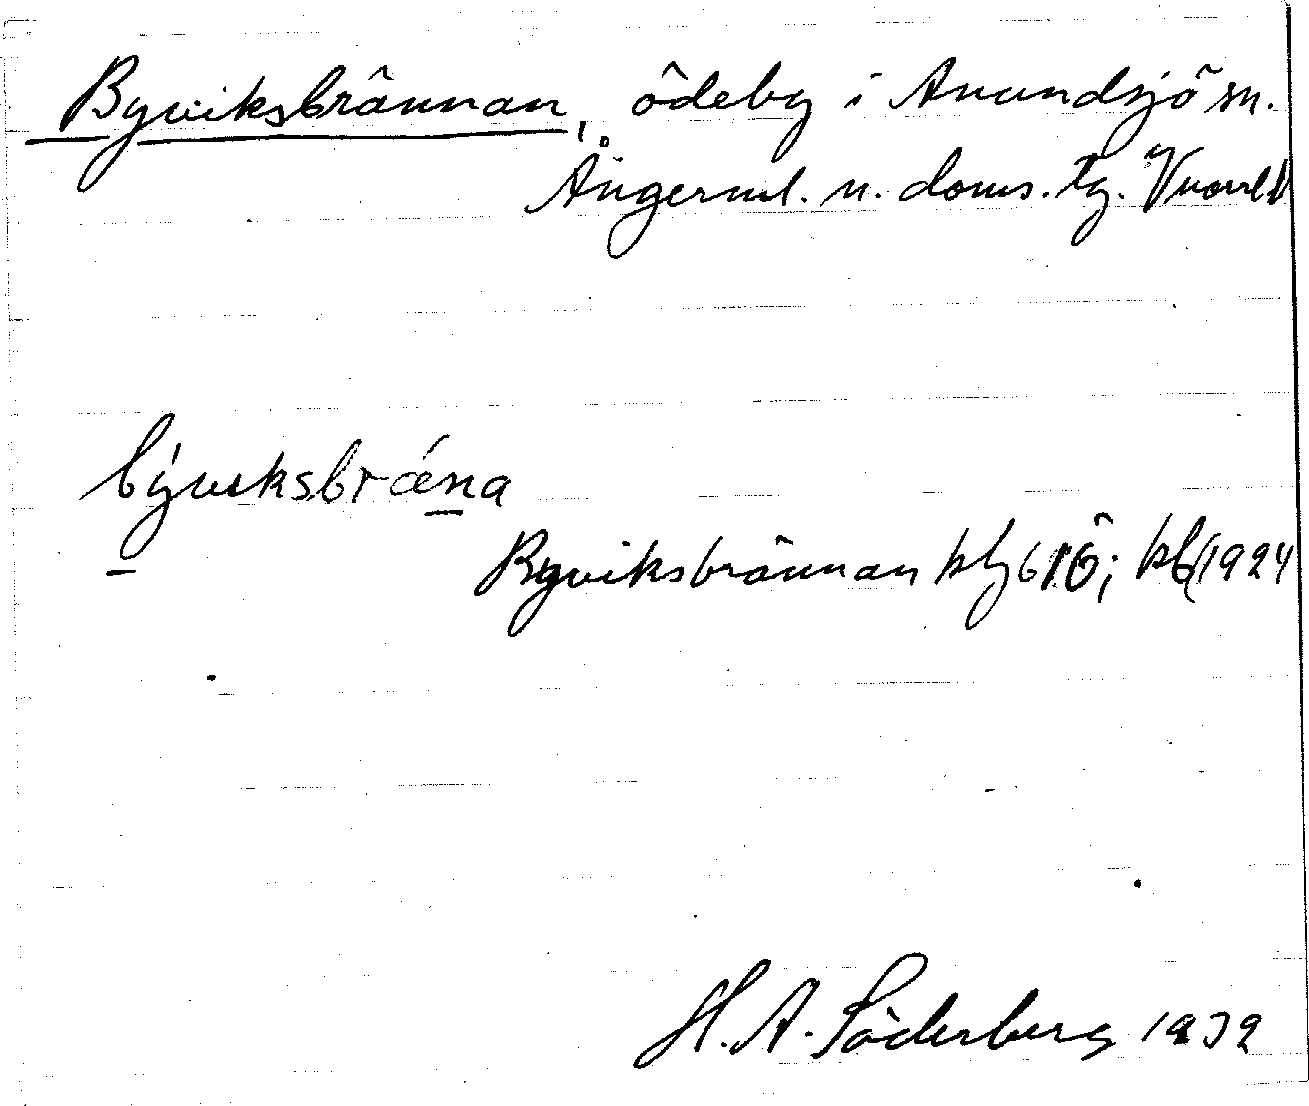 Byviksbrännan, ödeby i Anundsjö sn.
Ångerml. n. doms. tg. V.norrl.
býviksbrǽna
Byviksbrännan 1924
H. A. Söderberg 1932